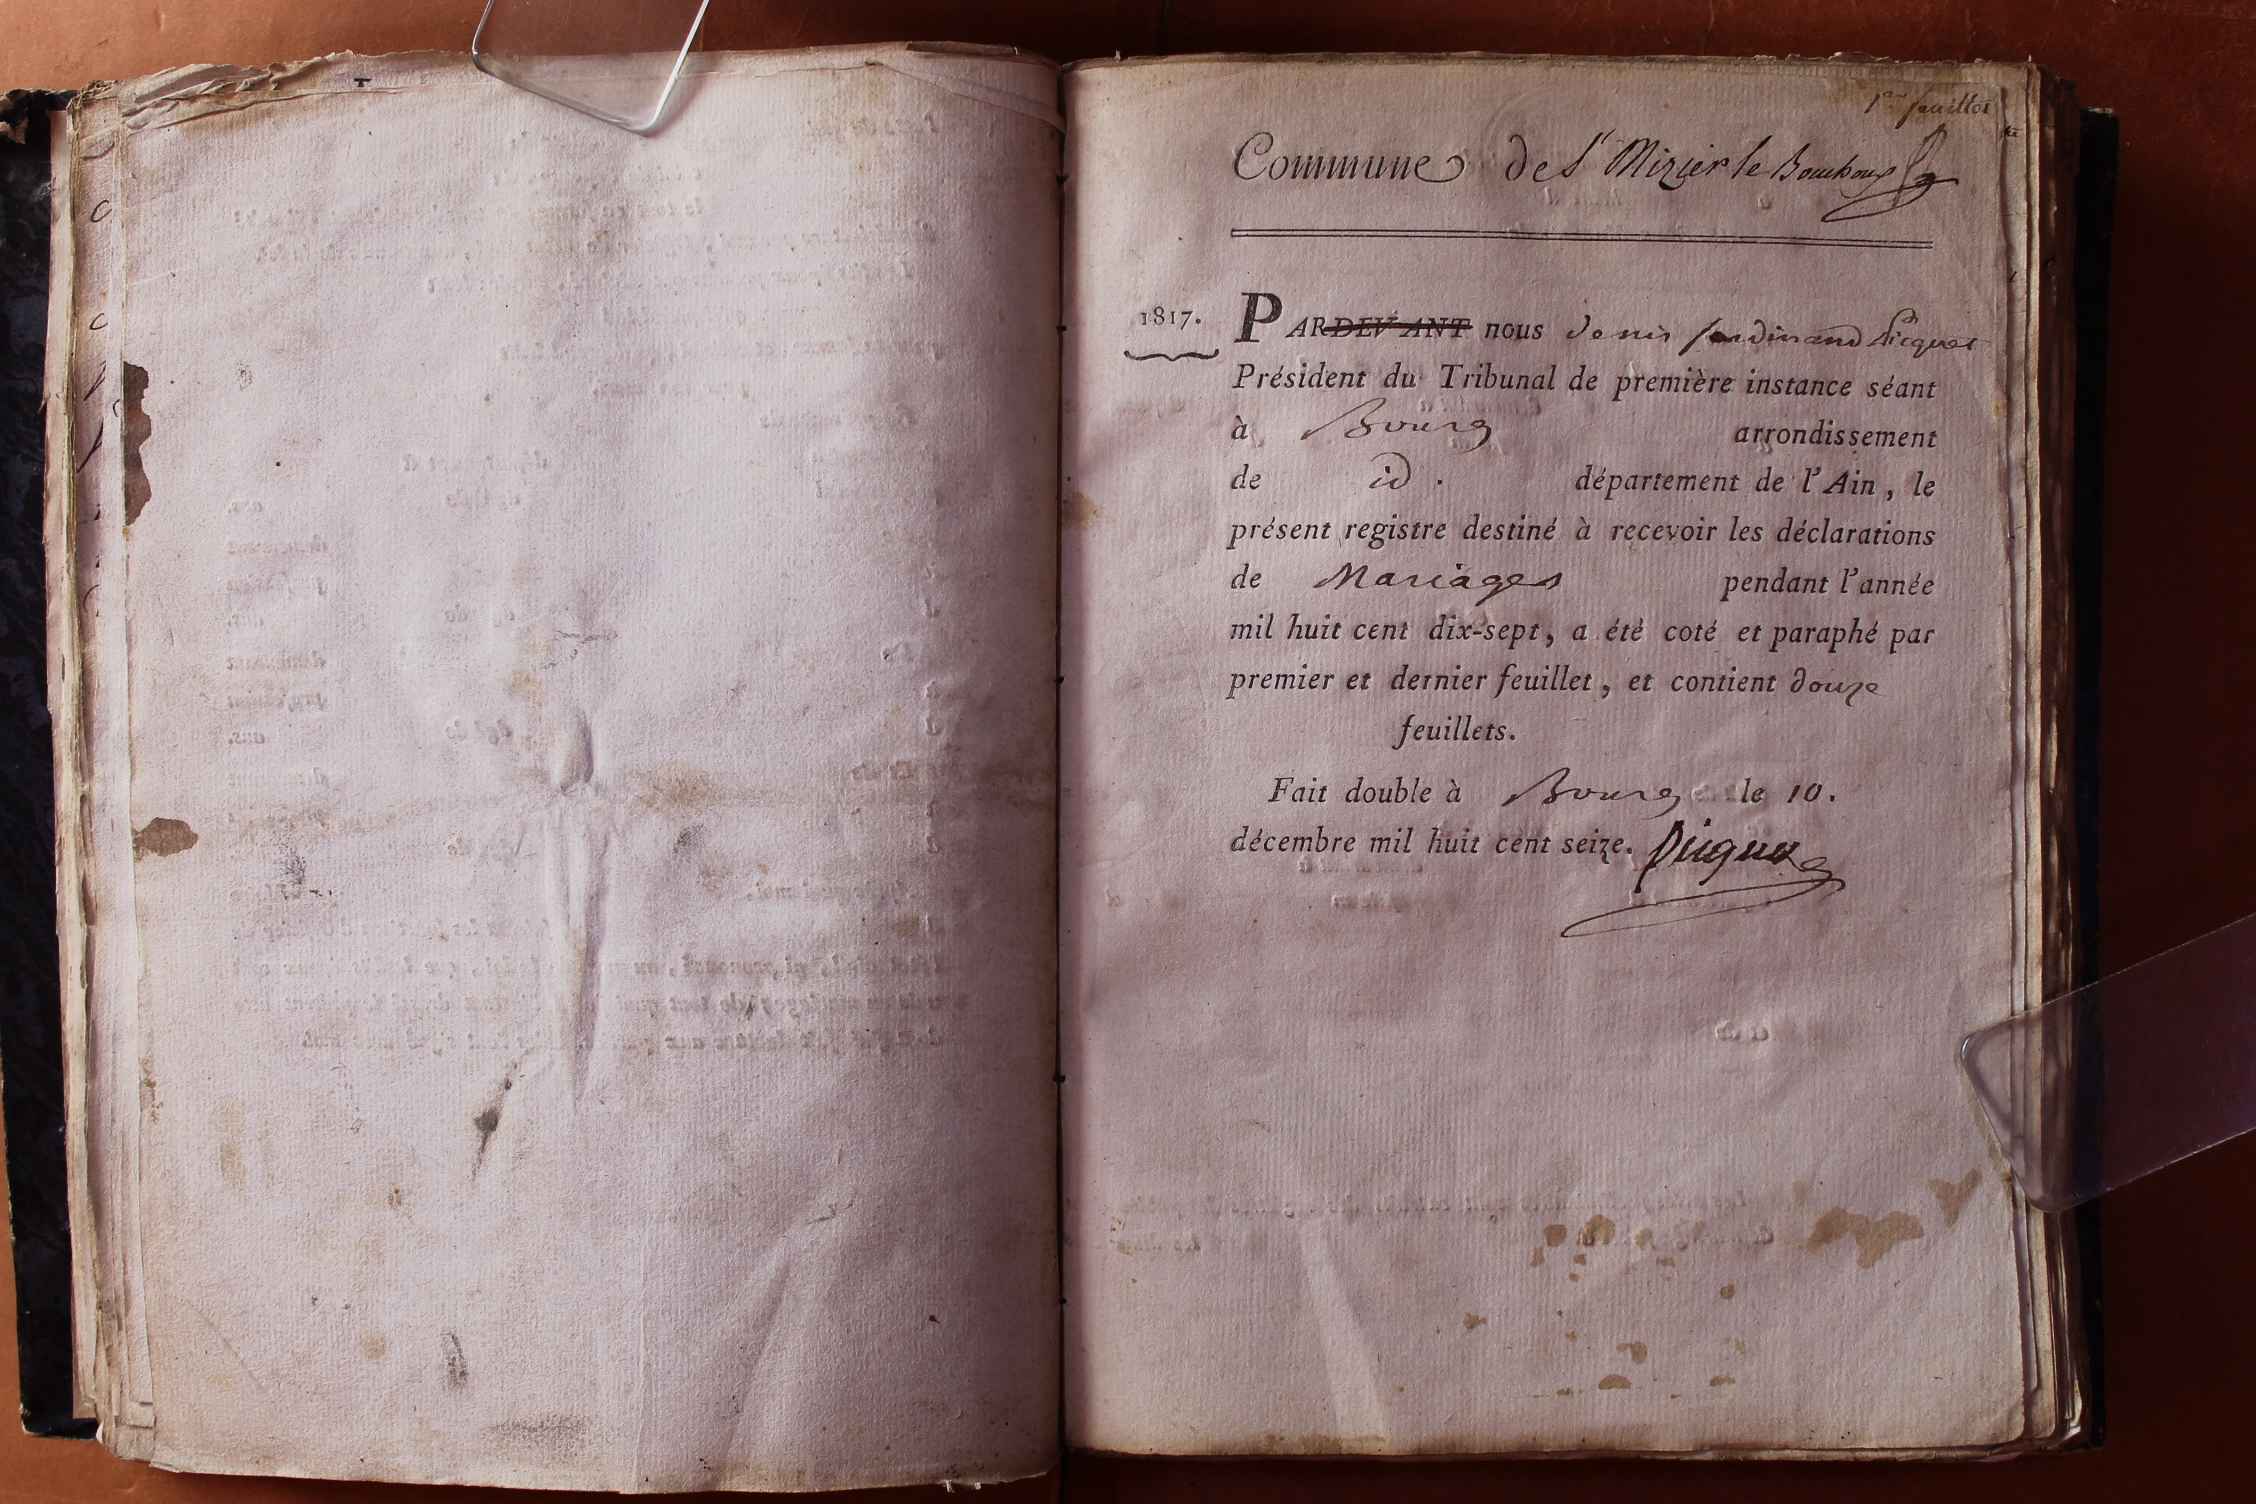 1er feuillet
Commune de St Nizier le Bouchoux
1817.
PARDEVANT nous Denis ferdinand Picquet
Président du Tribunal de première instance séant
à Bourg arrondissement
de id. département de l'Ain, le
présent registre destiné à recevoir les déclarations
de Mariages pendant l'année
mil huit cent dix-sept, a été coté et paraphé par
premier et dernier feuillet, et contient douze
feuillets.
Fait double à Bourg le 10.
décembre mil huit cent seize. Picquet